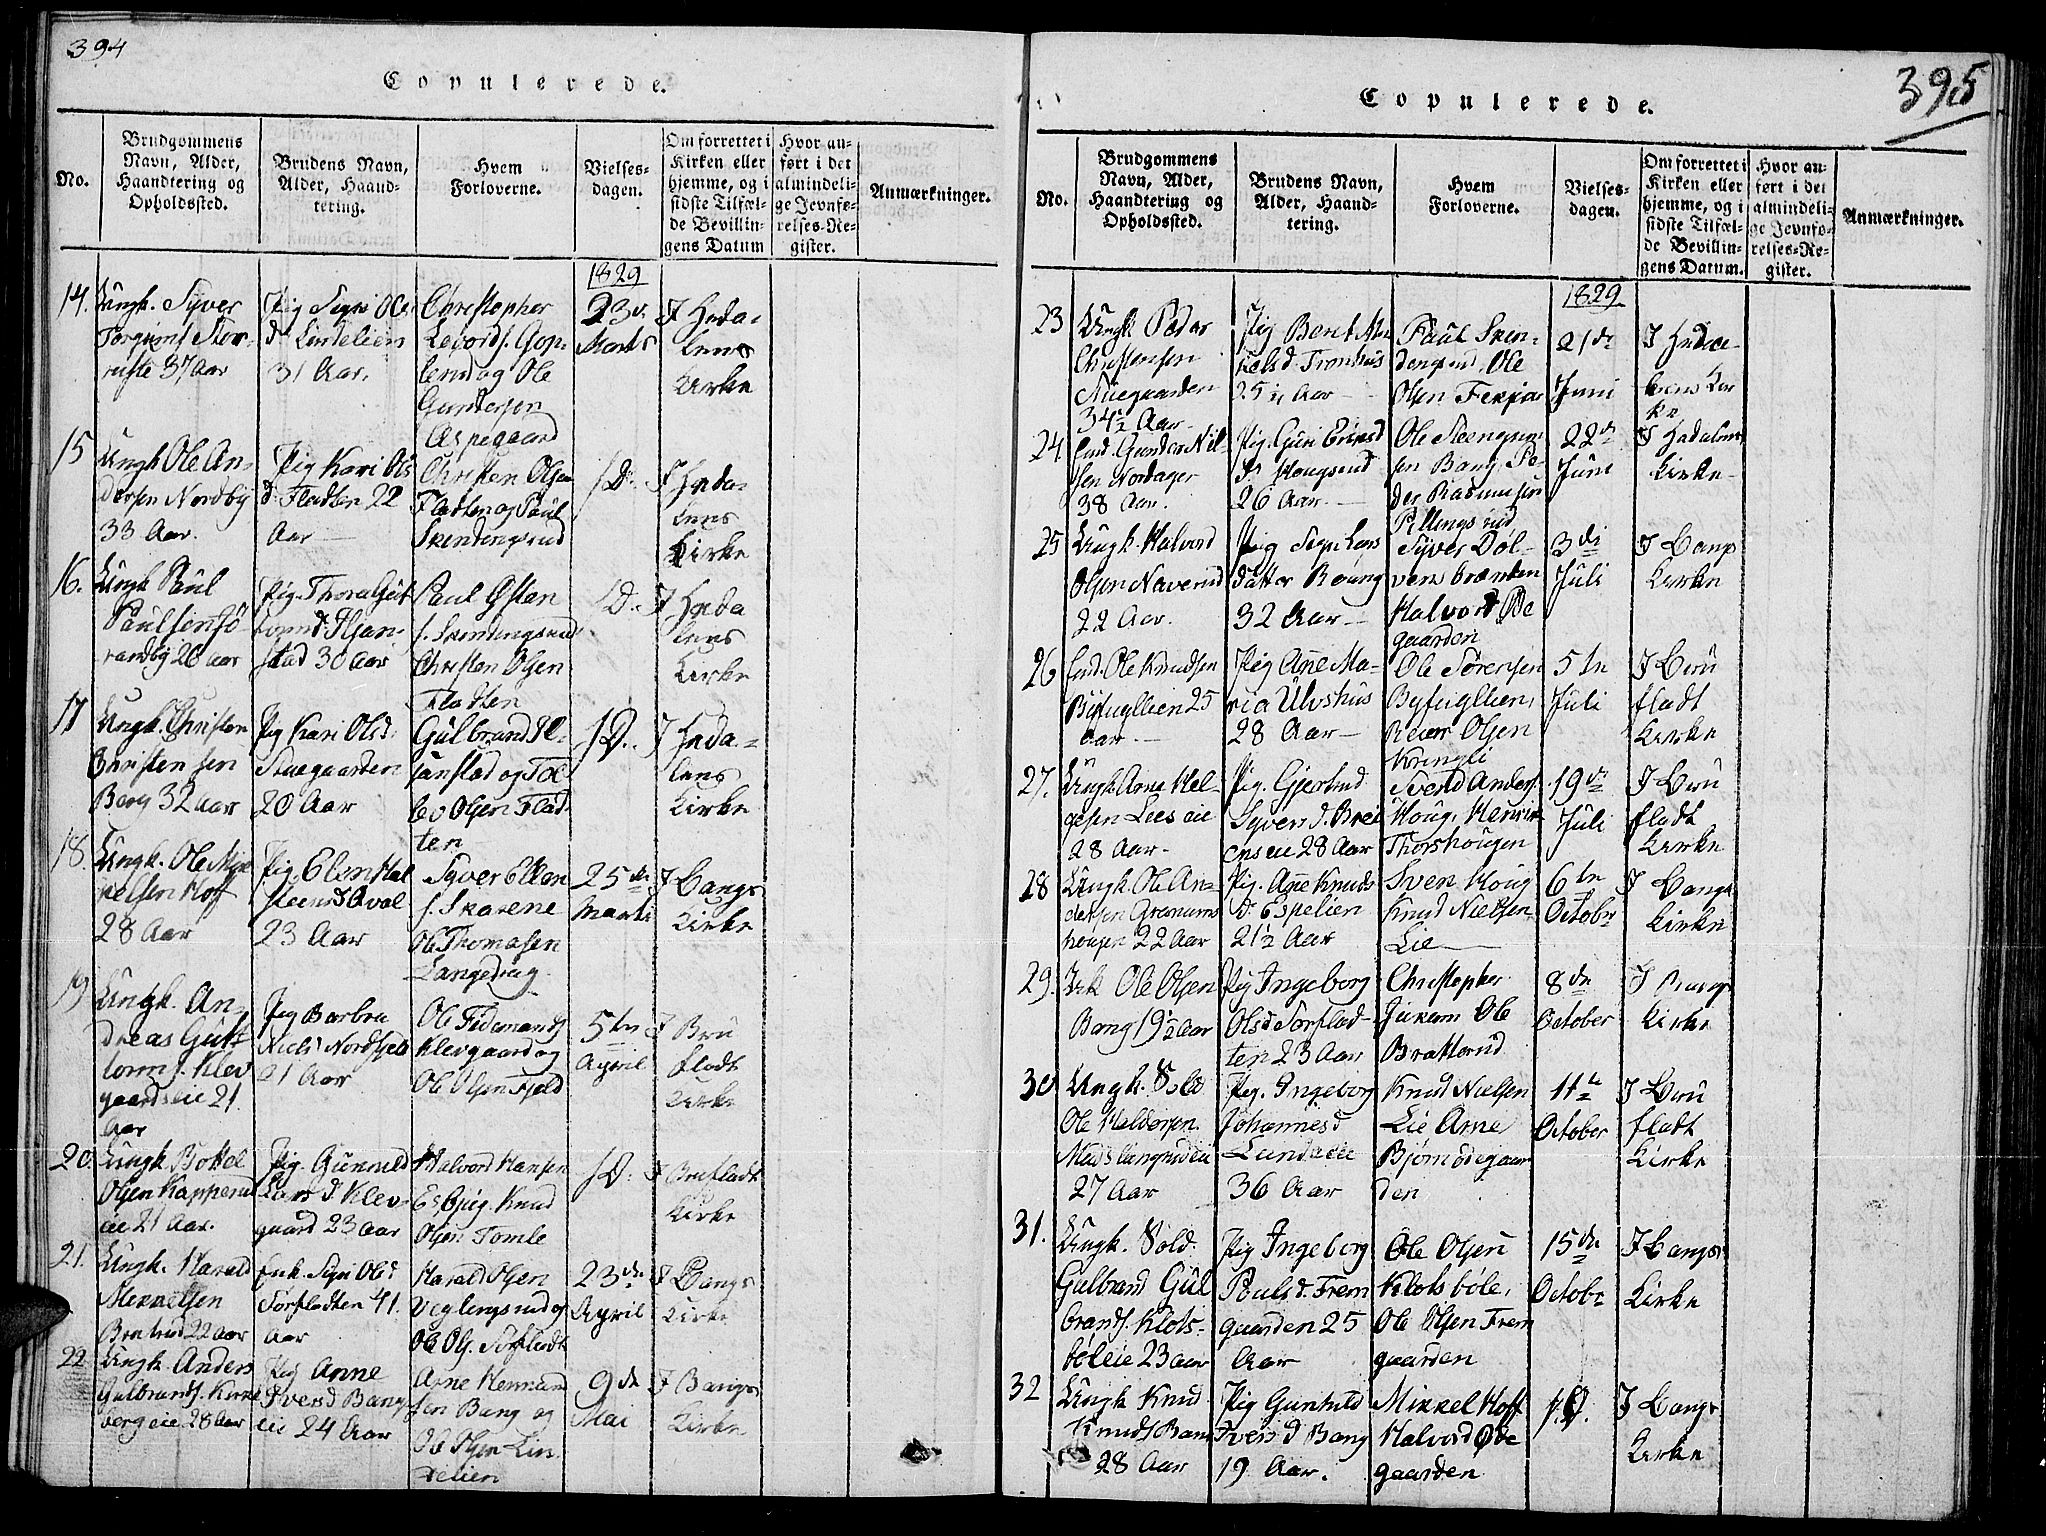 394
Copulerede.
No.
Brudgommens
Navn, Alder,
Haandtering og
Opholdssted.
Brudens Navn,
Alder, Haand-
tering.
Hvem
Forloverne.
Vielses-
dagen.
Om forrettet i
Kirken eller
hjemme, og i
sidste Tilfæl-
de Bevillin-
gens Datum
Hvor an-
ført i det
almindeli-
ge Jevnfø-
relses-Re-
gister.
Anmærkninger.
1829
14.
Ungk. Syver
37 Aar
Pig Sigri Ols
d. Lindelien
31 Aar.
Christopher
og Ole
Gundersen
Aspegaard
23de
Marts
I Heda-
lens
Kirke
15
Ungk Ole An-
dersen Nordby
33 Aar.
Pig Kari Ols
d. Fladten 22
Aar
Christen Olsen
Fladten og Paul
Skendengsrud
S.D.
I Heda-
lens
Kirke
16.
Ungk Paul
Paulsen Sø-
randby 26 aar
Pig. Thora Gut
30 Aar
Paul Østen
s. Skendengsrud
Christen Olsen
Fladten
S.D.
I Heda
lens
Kirke
17
Ungk. Christen
Christensen
Berg 32 aar
Pig Kari Olsd.
20 Aar
Gulbrand
og Tol
lev Olsen Flad-
ten
S.D.
I Heda-
lens
Kirke
18.
Ungk. Ole Mik
kelsen Hoff
28 Aar
Pig Elen Hal
steensd Aval
23 Aar
Syver Ellen
s. Skarene
Ole Thomasen
Langedrag
25de
Marts
I Bangs
Kirke
19
Ungk. An-
dreas Gut
torms. Klev
gaardseie 21
Aar
Pig Barbra
Niels
21 Aar
Ole Tidemands
Klevgaard og
Ole Olsen Fjeld
5te
April
I Bru
fladt
Kirke
20.
Ungk. Bottel
Olsen Kapperud
eie 21 Aar.
Pig. Gunnild
Lars d Klev-
gaard 23 aar
Halvord Hansen
Knud
Olsen Tomle
S.D.
I Brufladt
Kirke
21.
Ungk. Harald
Mikkelsen
22 aar
Enk. Sigri Olsd
Sørfladten 41.
Aar
Harald Olsen
Veglengsrud og
Ole Ols. Sørfladt
23de
April
I Bangs
Kirke
22
Ungk. Anders
Gulbrands. Kirke
berg eie 28 Aar
Pig Anne
Iversd Bang
eie 24 Aar
Arne
sen Bang og
Ole Olsen Lin
delien
9de
Mai
I Bangs
Kirke
395
Copulerede.
No.
Brudgommens
Navn, Alder,
Haandtering og
Opholdssted.
Brudens Navn,
Alder, Haand-
tering.
Hvem
Forloverne.
Vielses-
dagen.
Om forrettet i
Kirken eller
hjemme, og i
sidste Tilfæl-
de Bevillin-
gens Datum.
Hvor an-
ført i det
almindeli-
ge Jevnfø-
relses-Re-
gister.
Anmærkninger.
1829
23
Ungk Peder
Christensen
Niegaarden
34½ Aar
Pig Berit Mik
kelsd. Tronhus
25½ Aar
Paul Sken-
dengsrud, Ole
Olsen
21de
Juni
I Hedae-
lens Kir
ke
24
Enk. Gunder Nil-
sen Nordager
38 Aar.
Pig. Guri Erics
d. Hougsrud
26 Aar
Ole Steengrim
sen Bang. Pe-
der Rasmusen
Pillingsrud
22de
Juni
I Hedalens
Kirke
25
Ungk. Halvord
Olsen Naverud
22 Aar.
Pig Sigri Lars
datter Roung
32 Aar
Syver Døl-
vens brænden
Halvord Øde
gaarden
3die
Juli
I Bangs
Kirke
26
Enk. Ole Knudsen
Byfugllien 25
Aar
Pig Ane Ma-
ria Ulvshus
28 Aar
Ole Sørensen
Byfugllien,
Reier Olsen
Kringli
5te
Juli
I Bru
fladt
Kirke
27.
Ungk Arne Hel-
gesen Lees eie
28 Aar
Pig. Gjertrud
Syvers d. Brei
ens eie 28 Aar
Svend Anders.
Houg, Henrik
Thorshougen
19de
Juli
I Bru
fladt
Kirke
28
Ungk. Ole An-
dersen Granums
hougen 22 Aar
Pig. Ane Knuds
d. Espelien
21½ Aar
Sven Houg
Knud Nielsen
Lie
6te
October
I Bangs
Kirke
29.
Ole Olsen
Bang 19½ Aar
Pig Ingeborg
Olsd Sørflad-
ten 23 Aar
Christopher
Juram Ole
Bratterud
8de
October
I Bangs
Kirke
30
Ungk. Sold
Ole Haldorsen
27 Aar
Pig. Ingeborg
Johannesd
Lunds eie
36 Aar
Knud Nielsen
Lie Arne
Bjørn Ødegaar
den
11te
October
I Bru
fladt
Kirke
31.
Ungk. Sold.
Gulbrand Gul
brands. Klots-
bøleie 23 aar
Pig Ingeborg
Poulsd. Frem
gaarden 25
Aar
Ole Olsen
Klotsbøle,
Ole Olsen Frem
gaarden
15de
October
I Bangs
Kirke
32
Ungk Knud
Knuds Bang
28 Aar
Pig Gunhild
Iversd Bang
19 Aar.
Mikkel Hoff
Halvord Øde
gaarden
S.D.
I Bangs
Kirke